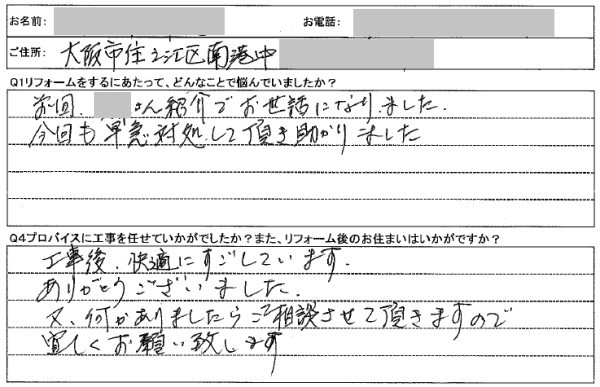 お名前: お電話:
ご住所: 大阪市住之江区南港中
Q1リフォームをするにあたって、どんなことで悩んでいましたか?
前回、 さん紹介でお世話になりました.
今回も早急対処して頂き助かりました
Q4プロパイスに工事を任せていかがでしたか?また、リフォーム後のお住まいはいかがですか?
工事後、快適にすごしています.
ありがとうございました.
又、何かありましたらご相談させて頂きますので
宜しくお願い致します